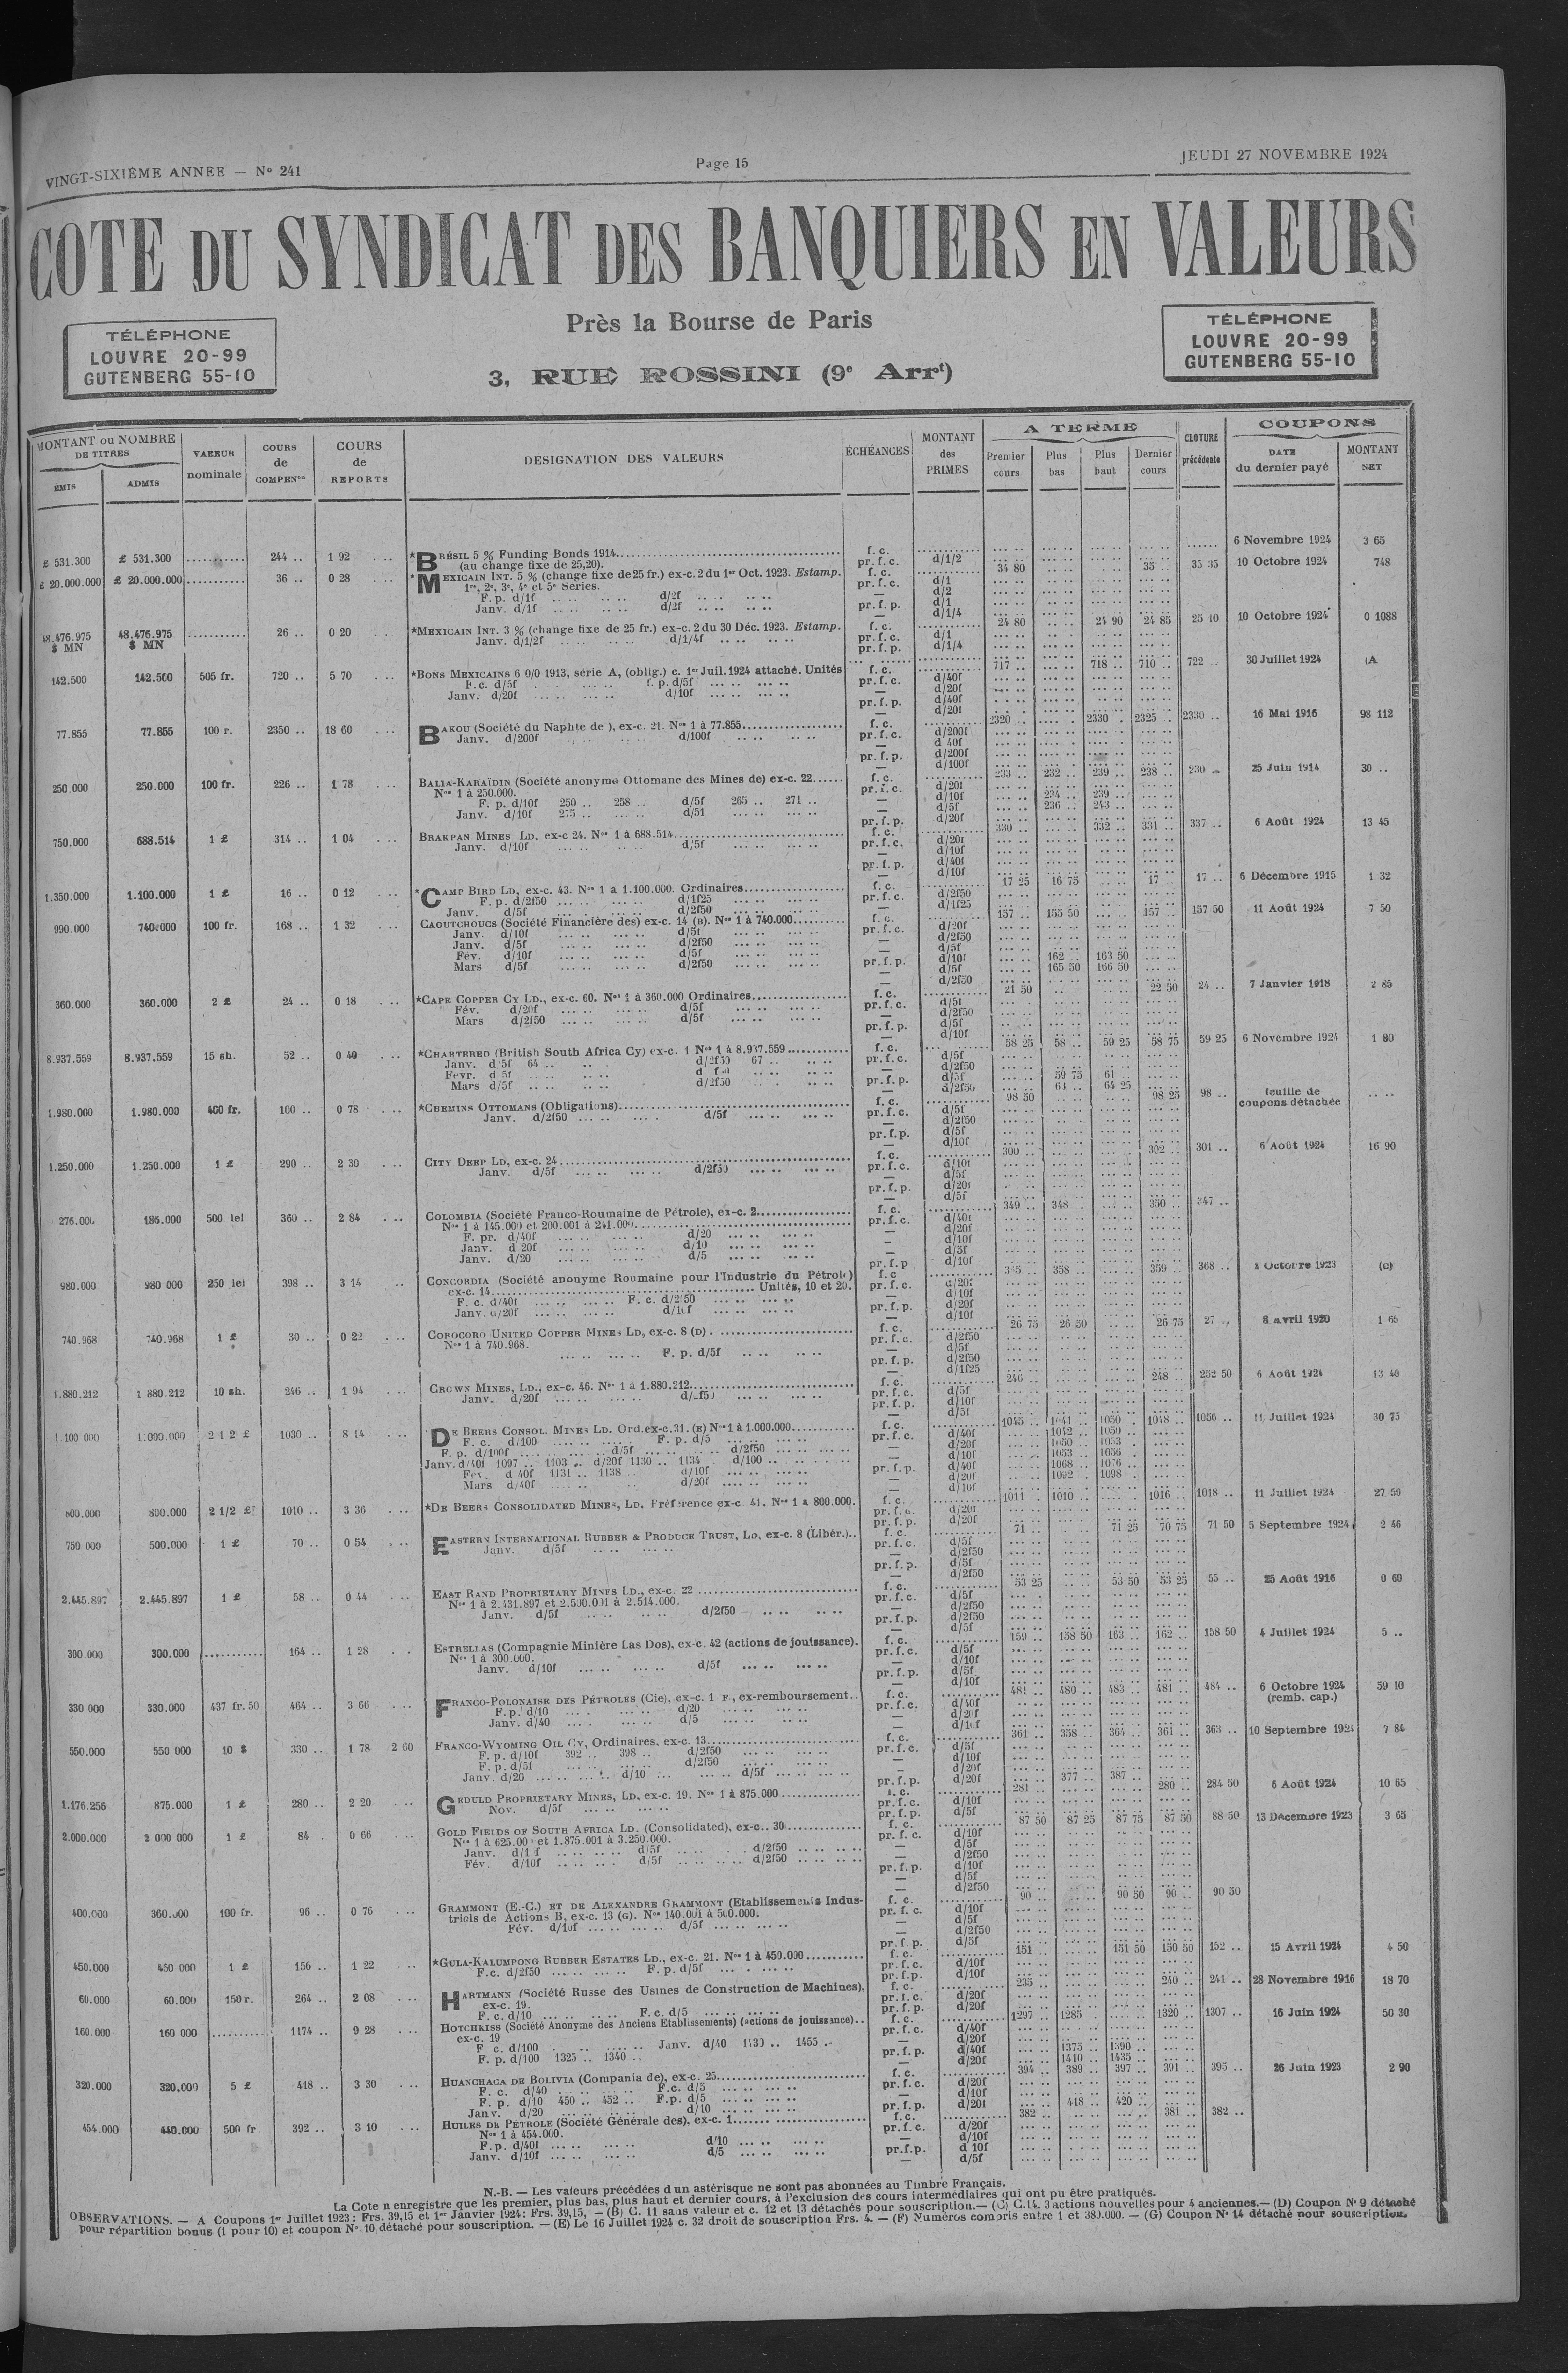 VINGT-SIXIÈME ANNEE — N° 241
Page 15
JEUDI 27 NOVEMBRE 1924
COTE DU SYNDICAT DES BANQUIERS EN VALEURS
Près la Bourse de Paris
3, RUE ROSSINI (9e Arrt)
TÉLÉPHONE
LOUVRE 20-99
GUTENBERG 55-10
TÉLÉPHONE
LOUVRE 20-99
GUTENBERG 55-10
MONTANT ou NOMBRE DE TITRES
ÉMIS ADMIS
VALEUR nominale
COURS de COMPENon
COURS de REPORTS
DESIGNATION DES VALEURS
ÉCHÉANCES
MONTANT des PRIMES
A TERME
Premier cours Plus bas Plus haut Dernier cours
CLOTURE précédente
COUPONS
DATE du dernier payé
MONTANT NET
£ 531.300 £ 531.300 244 .. 1 92 *BRÉSIL 5 % Funding Bonds 1914 f. c. 6 Novembre 1924 3 65
(au change fixe de 25,20). pr. f. c. d/1/2
£ 20.000.000 £ 20.000.000 36 .. 0 28 *MEXICAIN INT. 5 % (change fixe de 25 fr.) ex-c. 2 du 1er Oct. 1923. Estamp. f. c. 34 80 35 .. 35 35 10 Octobre 1924 748
1re, 2e, 3e, 4e et 5e Séries. pr. f. c. d/1
F. p. d/1f d/2f d/2
Janv. d/1f d/2f pr. f. p. d/1
d/1/4
48.476.975 $ MN 48.476.975 $ MN 26 .. 0 20 *MEXICAIN INT. 3 % (change fixe de 25 fr.) ex-c. 2 du 30 Déc. 1923. Estamp. f. c. 24 80 24 90 24 85 25 10 10 Octobre 1924 0 1088
Janv. d/1/2f d/1/4f pr. f. c. d/1
pr. f. p. d/1/4
142.500 142.500 505 fr. 720 .. 5 70 *BONS MEXICAINS 6 0/0 1913, série A, (oblig.) c. 1er Juil. 1924 attaché. Unités f. c. 717 .. 718 .. 710 .. 722 .. 30 Juillet 1924 (A
F.c. d/5f f. p. d/5f pr. f. c. d/40f
Janv. d/20f d/10f — d/20f
pr. f. p. d/40f
— d/20f
77.855 77.855 100 r. 2350 .. 18 60 BAKOU (Société du Naphte de ), ex-c. 21. Nos 1 à 77.855 f. c. 2320 .. 2330 .. 2325 .. 2330 .. 16 Mai 1916 98 112
Janv. d/200f d/100f pr. f. c. d/200f
— d 40f
pr. f. p. d/200f
— d/100f
250.000 250.000 100 fr. 226 .. 1 78 BALIA-KARAÏDIN (Société anonyme Ottomane des Mines de) ex-c. 22 f. c. 233 .. 232 .. 239 .. 238 .. 230 .. 25 Juin 1914 30 ..
Nos 1 à 250.000. pr. f. c. d/20f
F. p. d/10f 250 .. 258 .. d/5f 265 .. 271 .. — d/10f 234 .. 239 ..
Janv. d/10f 275 .. d/5f — d/5f 236 .. 243 ..
pr. f. p. d/20f
750.000 688.514 1 £ 314 .. 1 04 BRAKPAN MINES LD, ex-c 24. Nos 1 à 688.514 f. c. 330 .. 332 .. 331 .. 337 .. 6 Août 1924 13 45
Janv. d/10f d/5f pr. f. c. d/20f
— d/10f
pr. f. p. d/40f
— d/10f
1.350.000 1.100.000 1 £ 16 .. 0 12 *CAMP BIRD LD, ex-c. 43. Nos 1 à 1.100.000. Ordinaires f. c. 17 25 16 75 17 .. 17 .. 6 Décembre 1915 1 32
F. p. d/2f50 d/1f25 pr. f. c. d/2f50
Janv. d/5f d/2f50 — d/1f25
990.000 740.000 100 fr. 168 .. 1 32 CAOUTCHOUCS (Société Financière des) ex-c. 14 (B). Nos 1 à 740.000 f. c. 157 .. 155 50 157 .. 157 50 11 Août 1924 7 50
Janv. d/10f d/5f pr. f. c. d/20f
Janv. d/5f d/2f50 — d/2f50
Fév. d/10f d/5f — d/5f
Mars d/5f d/2f50 pr. f. p. d/10f 162 .. 163 50
— d/5f 165 50 166 50
d/2f50
360.000 360.000 2 £ 24 .. 0 18 *CAPE COPPER CY LD., ex-c. 60. Nos 1 à 360.000 Ordinaires f. c. 21 50 22 50 24 .. 7 Janvier 1918 2 85
Fév. d/20f d/5f pr. f. c. d/5f
Mars d/2f50 d/5f — d/2f50
pr. f. p. d/5f
— d/10f
8.937.559 8.937.559 15 sh. 52 .. 0 40 *CHARTERED (British South Africa Cy) ex-c. 1 Nos 1 à 8.937.559 f. c. 58 25 58 .. 59 25 58 75 59 25 6 Novembre 1924 1 80
Janv. d/5f 64 .. d/2f50 67 .. pr. f. c. d/5f
Févr. d 5f — d/2f50
Mars d/5f d/2f50 pr. f. p. d/5f 59 75 61
— d/2f50 63 .. 64 25
1.980.000 1.980.000 400 fr. 100 .. 0 78 *CHEMINS OTTOMANS (Obligations) f. c. 98 50 98 25 98 .. feuille de coupons détachée
Janv. d/2f50 d/5f pr. f. c. d/5f
— d/2f50
pr. f. p. d/5f
— d/10f
1.250.000 1.250.000 1 £ 290 .. 2 30 CITY DEEP LD, ex-c. 24 f. c. 300 .. 302 .. 301 .. 6 Août 1924 16 90
Janv. d/5f d/2f50 pr. f. c. d/10f
— d/5f
pr. f. p. d/20f
— d/5f
276.000 186.000 500 lei 360 .. 2 84 COLOMBIA (Société Franco-Roumaine de Pétrole), ex-c. 2 f. c. 349 .. 348 .. 350 .. 347 ..
Nos 1 à 145.000 et 200.001 à 241.000 pr. f. c. d/40f
F. pr. d/40f d/20 — d/20f
Janv. d 20f d/10 — d/10f
Janv. d/20 d/5 — d/5f
pr. f. p d/10f
980.000 980 000 250 lei 398 .. 3 14 CONCORDIA (Société anonyme Roumaine pour l'Industrie du Pétrole) f. c 358 .. 359 .. 368 .. Octobre 1923 (C)
ex-c. 14 Unités, 10 et 20. pr. f. c. d/20f
F. c. d/40f F. c. d/2f50 — d/10f
Janv. d/20f d/10f pr. f. p. d/20f
— d/10f
740.968 740.968 1 £ 30 .. 0 22 COROCORO UNITED COPPER MINES LD, ex-c. 8 (D) f. c. 26 75 26 50 26 75 27 .. 8 avril 1920 1 65
Nos 1 à 740.968. pr. f. c. d/2f50
F. p. d/5f — d/5f
pr. f. p. d/2f50
— d/1f25
1.880.212 1 880.212 10 sh. 246 .. 1 94 CROWN MINES, LD., ex-c. 46. Nos 1 à 1.880.212 f. c. 246 .. 248 .. 252 50 6 Août 1924 13 40
Janv. d/20f d/2f50 pr. f. c. d/5f
pr. f. p. d/10f
— d/5f
1.100 000 1.000.000 2 1 2 £ 1030 .. 8 14 DE BEERS CONSOL. MINES LD. Ord.ex-c.31. (E) Nos 1 à 1.000.000 f. c. 1045 .. 1041 .. 1050 .. 1048 .. 1056 .. 11 Juillet 1924 30 75
F. c. d/100 F. p. d/5 pr. f. c. d/40f 1042 .. 1050 ..
F. p. d/100f d/5f d/2f50 — d/20f 1050 .. 1053 .
Janv. d/40f 1097 .. 1103 .. d/20f 1130 .. 1134 . d/100 — d/10f 1053 .. 1056 ..
Fév. d 40f 1131 .. 1138 .. d/10f pr. f. p. d/40f 1068 .. 1076 ..
Mars d/40f d/20f — d/20f 1092 . 1098 .
— d/10f
800.000 800.000 2 1/2 £ 1010 .. 3 36 *DE BEERS CONSOLIDATED MINES, LD. Préférence ex-c. 41. Nos 1 à 800.000. f. c. 1011 . 1010 .. 1016 .. 1018 .. 11 Juillet 1924 27 50
pr. f. c. d/20f
pr. f. p. d/20f
750 000 500.000 1 £ 70 .. 0 54 EASTERN INTERNATIONAL RUBBER & PRODUCE TRUST, LD, ex-c. 8 (Libér.) f. c. 71 .. 71 25 70 75 71 50 5 Septembre 1924 2 46
Janv. d/5f pr. f. c. d/5f
— d/2f50
pr. f. p. d/5f
— d/2f50
2.445.897 2.445.897 1 £ 58 .. 0 44 EAST RAND PROPRIETARY MINES LD., ex-c. 22 f. c. 53 25 53 50 53 25 55 .. 25 Août 1916 0 60
Nos 1 à 2.431.897 et 2.500.001 à 2.514.000. pr. f. c. d/5f
Janv. d/5f d/2f50 — d/2f50
pr. f. p. d/2f50
— d/5f
300.000 300.000 164 .. 1 28 ESTRELLAS (Compagnie Minière Las Dos), ex-c. 42 (actions de jouissance). f. c. 159 .. 158 50 163 .. 162 .. 158 50 4 Juillet 1924 5 ..
Nos 1 à 300.000. pr. f. c. d/5f
Janv. d/10f d/5f — d/10f
pr. f. p. d/5f
— d/10f
330 000 330.000 437 fr. 50 464 .. 3 66 FRANCO-POLONAISE DES PÉTROLES (Cie), ex-c. 1 F, ex-remboursement f. c. 481 .. 480 .. 483 .. 481 .. 484 .. 6 Octobre 1924 59 10
(remb. cap.)
F.p. d/10 d/20 pr. f. c. d/40f
Janv. d/40 d/5 — d/20f
— d/10f
550.000 550 000 10 $ 330 .. 1 78 2 60 FRANCO-WYOMING OIL CY, Ordinaires, ex-c. 13 f. c. 361 .. 358 .. 364 .. 361 .. 363 .. 10 Septembre 1924 7 84
F. p. d/10f 392 .. 398 .. d/2f50 pr. f. c. d/5f
F. p. d/5f d/2f50 — d/10f
Janv. d/20 d/10 d/5f — d/20f
pr. f. p. d/20f 377 .. 387 ..
1.176.256 875.000 1 £ 280 .. 2 20 GEDULD PROPRIETARY MINES, LD, ex-c. 19. Nos 1 à 875.000 f. c. 281 .. 280 .. 284 50 6 Août 1924 10 65
Nov. d/5f pr. f. c. d/10f
pr. f. p. d/5f
2.000.000 2 000 000 1 £ 84 . 0 66 GOLD FIELDS OF SOUTH AFRICA LD. (Consolidated), ex-c.. 30 f. c. 87 50 87 25 87 75 87 50 88 50 13 Décembre 1923 3 65
Nos 1 à 625.000 et 1.875.001 à 3.250.000. pr. f. c. d/10f
Janv. d/10f d/5f d/2f50 — d/5f
Fév. d/10f d/5f d/2f50 — d/2f50
pr. f. p. d/10f
— d/5f
— d/2f50
400.000 360.000 100 fr. 96 .. 0 76 GRAMMONT (E.-C.) ET DE ALEXANDRE GRAMMONT (Etablissements Indus- f. c. 90 .. 90 50 90 .. 90 50
triels de Actions B, ex-c. 13 (G). Nos 140.001 à 500.000. pr. f. c. d/10f
Fév. d/10f d/5f — d/5f
— d/2f50
pr. f. p. d/5f
450.000 450 000 1 £ 156 .. 1 22 *GULA-KALUMPONG RUBBER ESTATES LD., ex-c. 21. Nos 1 à 450.000 f. c. 151 .. 151 50 150 50 152 .. 15 Avril 1924 4 50
F.c. d/2f50 F. p. d/5f pr. f. c. d/10f
pr. f.p. d/10f
60.000 60.000 150 r. 264 .. 2 08 HARTMANN (Société Russe des Usines de Construction de Machines), f. c. 235 .. 240 .. 241 .. 28 Novembre 1916 18 70
ex-c. 19. pr. f. c. d/20f
F. c. d/10 F.c. d/5 pr. f. p. d/20f
160.000 160 000 1174 .. 9 28 HOTCHKISS (Société Anonyme des Anciens Etablissements) (actions de jouissance) f. c. 1297 .. 1285 .. 1320 .. 1307 .. 16 Juin 1924 50 30
ex-c. 19 pr. f. c. d/40f
F c. d/100 Janv. d/40 1430 .. 1455 .. — d/20f
F. p. d/100 1325 .. 1340 .. pr. f. p. d/40f 1375 .. 1390 ..
— d/20f 1410 .. 1435 ..
320.000 320.000 5 £ 418 .. 3 30 HUANCHACA DE BOLIVIA (Compania de), ex-c. 25 f. c. 394 .. 389 .. 397 .. 391 .. 395 .. 26 Juin 1923 2 90
F. c. d/40 F.c. d/5 pr. f. c. d/20f
F. p. d/10 450 .. 452 .. F.p. d/5 — d/10f
Janv. d/20 d/10 pr. f. p. d/20f 418 .. 420 ..
454.000 440.000 500 fr 392 .. 3 10 HUILES DE PÉTROLE (Société Générale des), ex-c. 1 f. c. 382 .. 381 .. 382 ..
Nos 1 à 454.000. pr. f. c. d/20f
F.p. d/40f d/10 — d/10f
Janv. d/10f d/5 pr.f.p. d 10f
— d/5f
N.-B. — Les valeurs précédées d un astérisque ne sont pas abonnées au Timbre Français.
La Cote n enregistre que les premier, plus bas, plus haut et dernier cours, à l'exclusion des cours intermédiaires qui ont pu être pratiqués.
OBSERVATIONS. — A Coupons 1er Juillet 1923 : Frs. 39,15 et 1er Janvier 1924: Frs. 39,15, — (B) C. 11 sans valeur et c. 12 et 13 détachés pour souscription.— (C) C.14. 3 actions nouvelles pour 4 anciennes.— (D) Coupon N° 9 détaché
pour répartition bonus (1 pour 10) et coupon N° 10 détaché pour souscription. — (E) Le 16 Juillet 1924 c. 32 droit de souscription Frs. 4. — (F) Numéros compris entre 1 et 380.000. — (G) Coupon N° 14 détaché pour souscription.